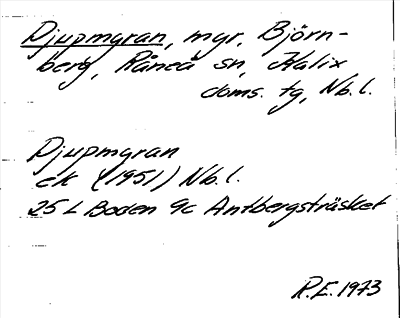 Djupmyran, myr, Björn-
berg, Råneå sn, Kalix
doms. tg, Nb.l.
Djupmyran
ek (1951) Nb.l.
25 L Boden 9c Antbergsträsket
R.E. 1973